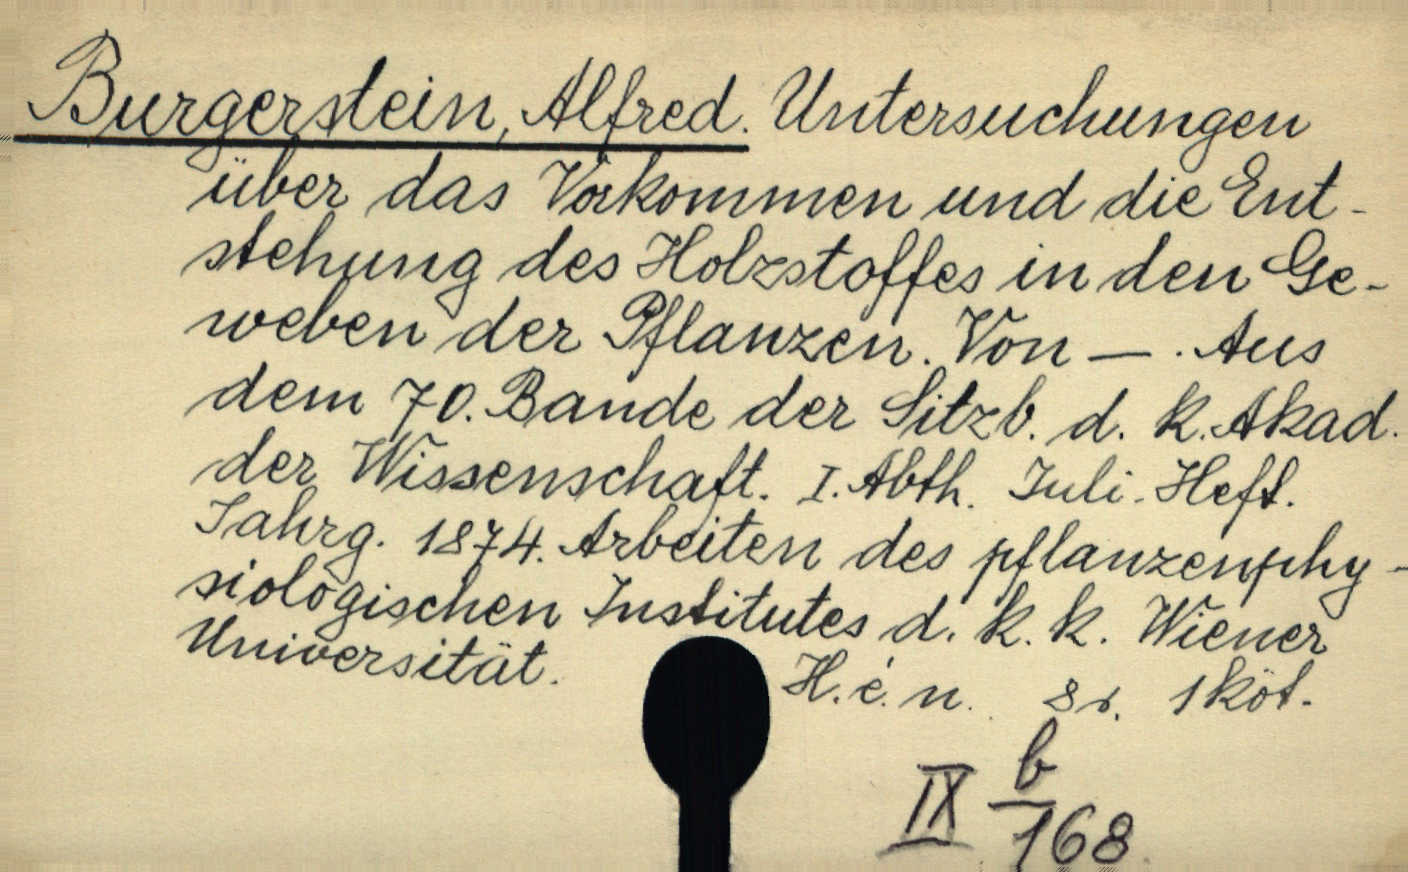 Burgerstein, Alfred. Untersuchungen
über das Vorkommen und die Ent-
stehung des Holzstoffes in den Ge-
weben der Pflanzen. Von — . Aus
dem 70. Bande der Sitzb. d. k. Akad.
der Wissenschaft. I. Abth. Juli-Heft.
Jahrg. 1874. Arbeiten des pflanzenphy-
siologischen Institutes d. k. k. Wiener
Universität.
H. é. n. 8r. 1 köt.
IX b/168